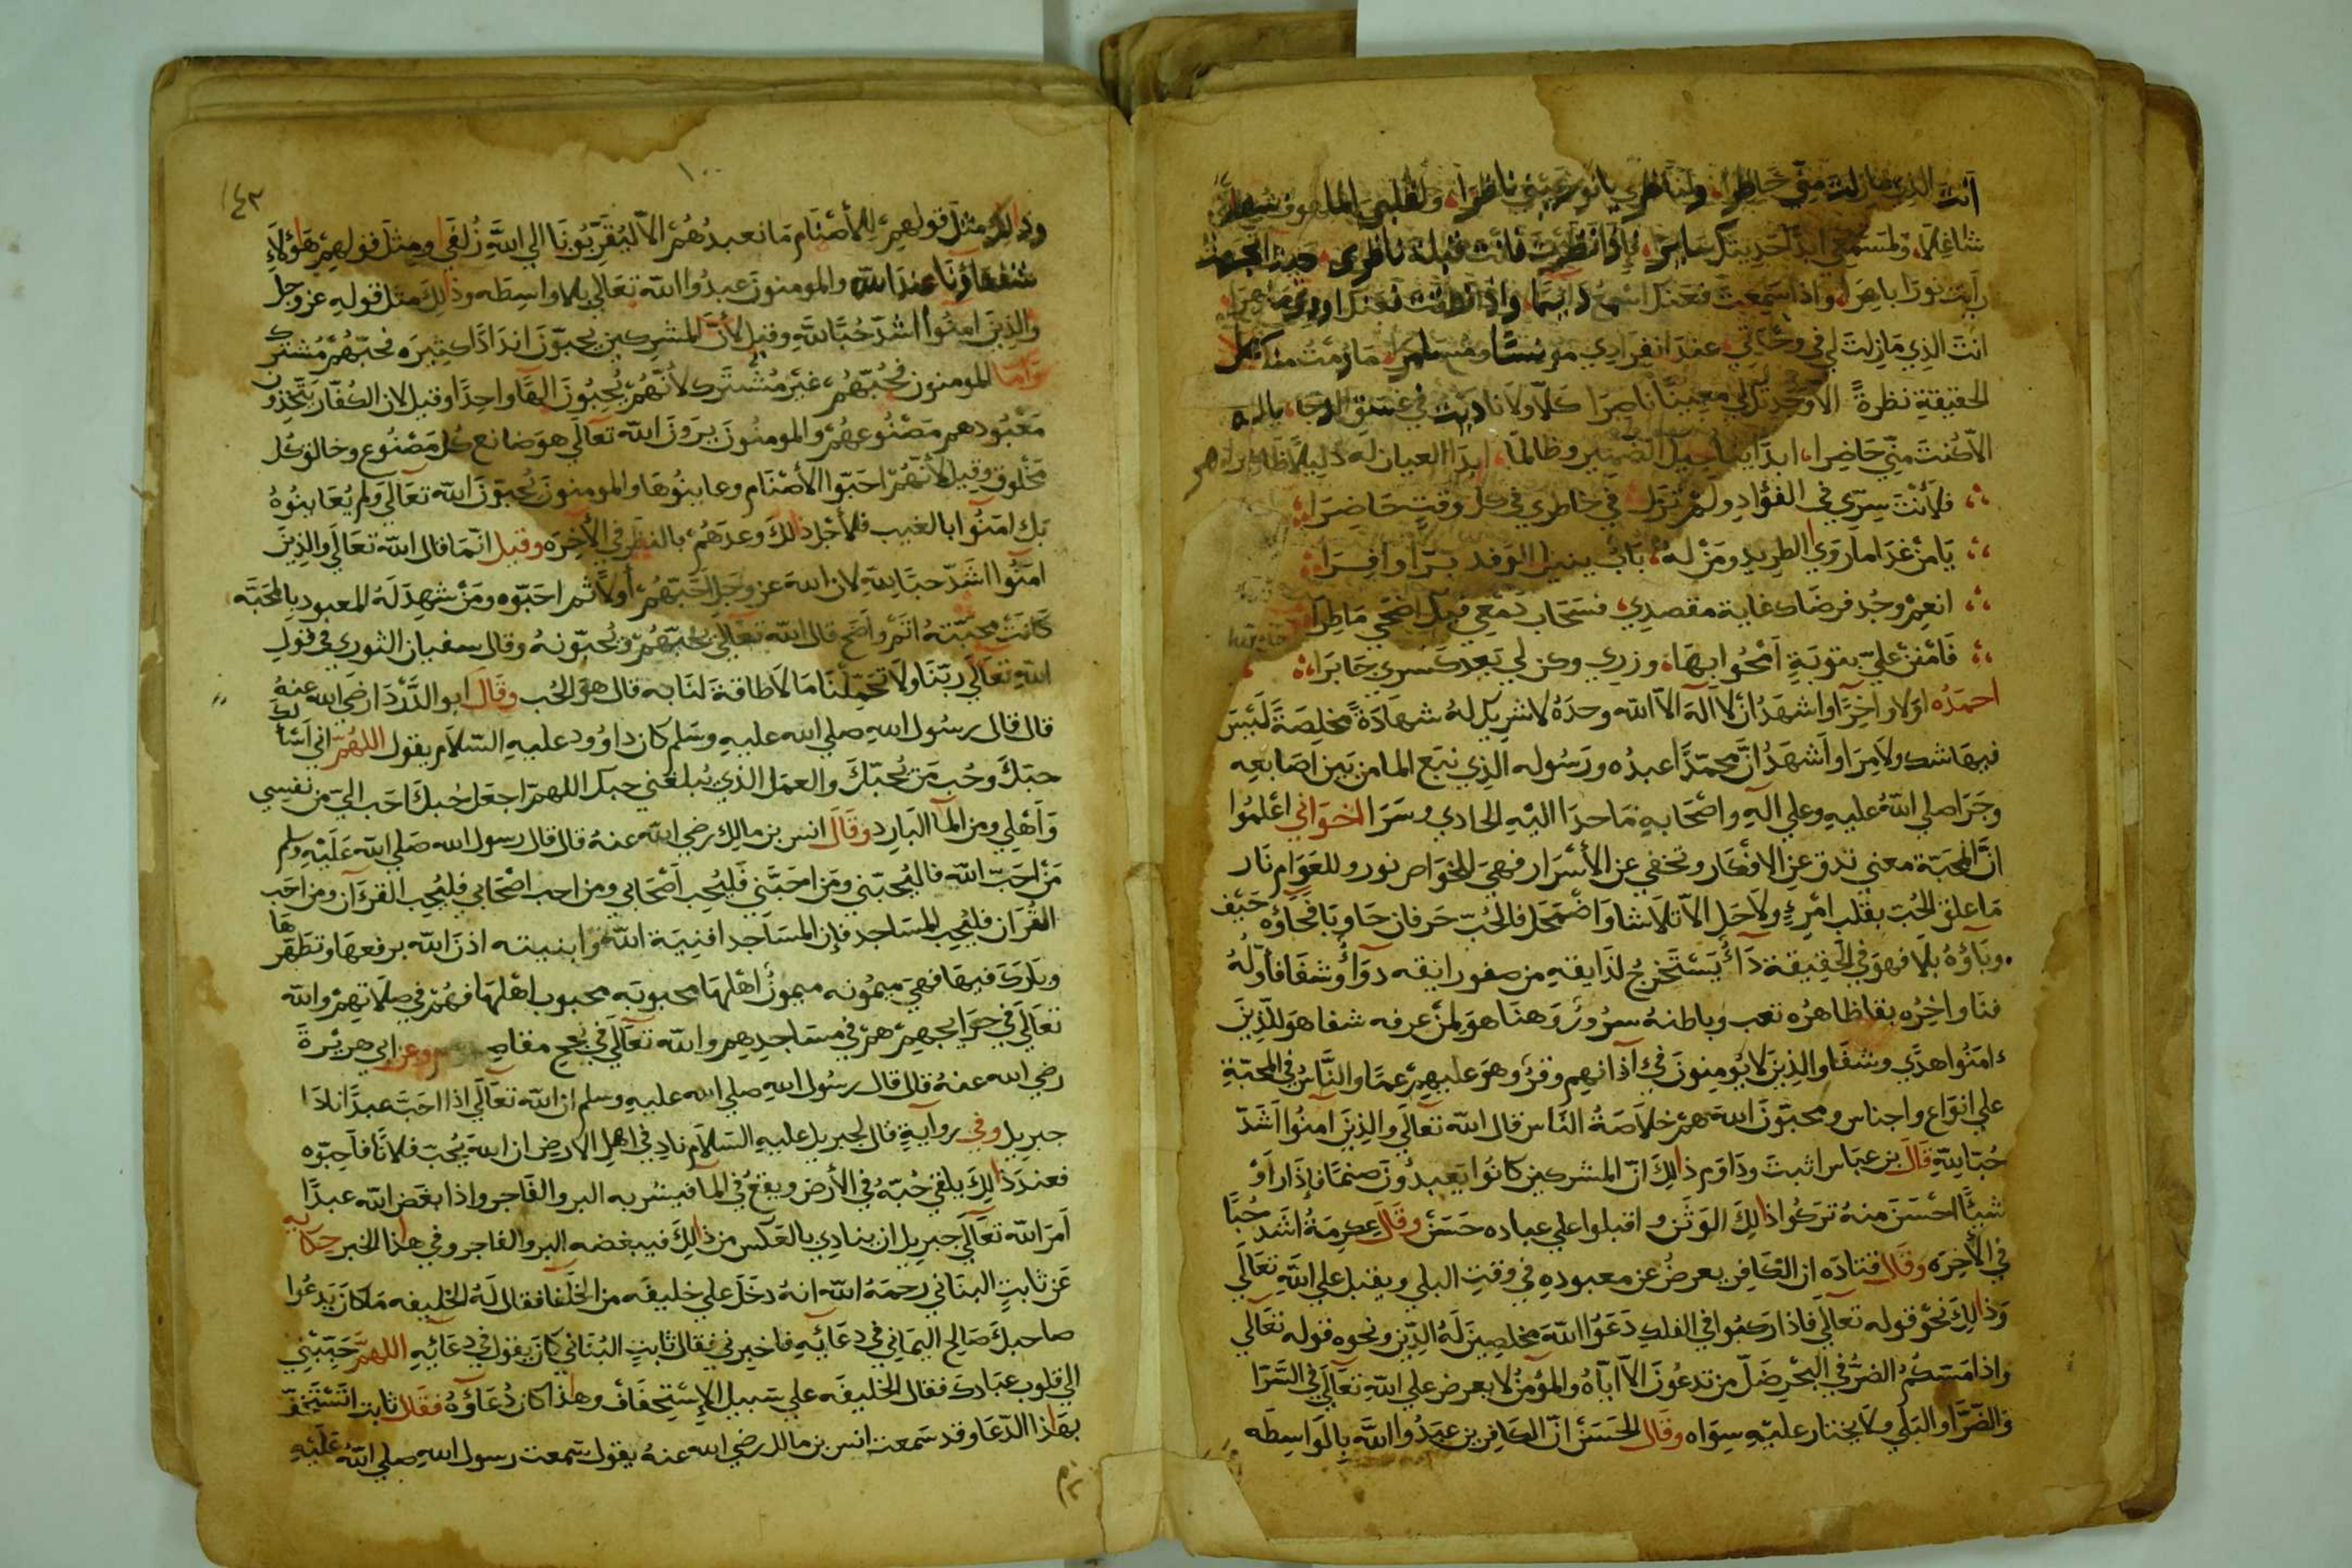 انت الذي مازلت مني خاطرا ولناظري يا نور عيني ناظرا ولقلبي الملهوف
شاغلا ولمسمعي ابدا لحديثك سامرا فإذا نظرت فانت قبلة ناظري
رايت نورا باهرا واذا سمعت فعنك اسمع دايما واذا نطقت فعنك اروي
انت الذي مازلت لي في وحشتي عند انفرادي مونسا ومسامرا مازمت منك
الحقيقة نظرة الا وجدتك لي معينا ناصرا كلا ولا ناديت في غسق الدجا يا الله
الا كنت مني حاضرا ابدا
فلأنت سري في الفؤاد ولم تزل في خاطري في كل وقت حاضرا
يا من غدا مأوى الطريد ومن له باب ينيل الوفد برا وافرا
انعم وجد فرضاك غاية مقصدي فسحاب دمعي فيك اضحي ماطرا
فامنن علي بتوبة امحوا بها وزري وكن لي بعد كسري جابرا
احمده اولا واخرا واشهد ان لا اله الا الله وحده لا شريك له شهادة مخلصة ليس
فيها شك ولا مرا واشهد ان محمدا عبده ورسوله الذي نبع الما من بين اصابعه
وجرا صلي الله عليه وعلي اله واصحابه ما حدا اليه الحادي وسرا اخواني اعلموا
ان المحبة معني تدق عن الافكار وتخفي عن الأسرار فهي للخواص نور وللعوام نار
ما علق الحب بقلب امرء ولا حل الا تلاشا واضمحل فالحب حرفان حا وبا فحاؤه حيف
وباؤه بلا فهو في الحقيقة داء يستخرج لذايقه من صفو رايقه دوآ وشفا فأوله
فنا واخره بقا ظاهره تعب وباطنه سرور وهنا هو لمن عرفه شفا هو للذين
ءامنوا هدي وشفا والذين لا يومنون في آذانهم وقر وهو عليهم عما والناس في المحبة
علي انواع واجناس ومحبون الله هم خلاصة الناس قال الله تعالي والذين امنوا اشد
حبا لله قال بن عباس اثبت وداوم ذالك ان المشركين كانوا يعبدون صنما فإذا رأو
شيئا احسن منه تركوا ذالك الوثن واقبلوا علي عباده حسن وقال عكرمة اشد حبا
في الأخره وقال قتاده ان الكافر يعرض عن معبوده في وقت البلي ويقبل علي الله تعالي
وذالك نحو قوله تعالي فاذا ركبوا في الفلك دعوا الله مخلصين له الدين ونحوه قوله تعالي
واذا مسكم الضر في البحر ضل من تدعون الا اياه والمؤمن لا يعرض علي الله تعالي في السرا
والضرا والبلي ولا يختار عليه سواه وقال الحسن ان الكافرين عبدوا الله بالواسطه
١٤٣
١٠٠
وذالك مثل قولهم للأصنام ما نعبدهم الا ليقربونا الي الله زلفي ومثل قولهم هؤلاء
شفعاؤنا عند الله والمومنون عبدوا الله تعالي بلا واسطه وذالك مثل قوله عز وجل
والذين امنوا اشد حبا لله وقيل لأن المشركين يحبون اندادا كثيره فحبهم مشترك
واما المومنون فحبهم غير مشترك لأنهم يحبون الها واحدا وقيل لان الكفار يتخذون
معبودهم مصنوعهم والمومنون يرون الله تعالي هو صانع كل مصنوع وخالق كل
مخلوق وقيل لأنهم احبوا الأصنام وعاينوها والمومنون يحبون الله تعالي ولم يعاينوه
بل امنوا بالغيب فلأجل ذالك وعدهم بالنظر في الأخره وقيل انما قال الله تعالي والذين
امنوا اشد حبا لله لان الله عز وجل احبهم أولا ثم احبوه ومن شهد له المعبود بالمحبه
كانت محبته اتم واصح قال الله تعالي يحبهم ويحبونه وقال سفيان الثوري في قول
الله تعالي ربنا ولا تحملنا ما لا طاقة لنا به قال هو الحب وقال ابو الدردا رضي الله عنه
قال قال رسول الله صلي الله عليه وسلم كان داوود عليه السلام يقول اللهم اني اسألك
حبك وحب من يحبك والعمل الذي يبلغني حبك اللهم اجعل حبك احب الي من نفسي
وأهلي ومن المآ البارد وقال انس بن مالك رضي الله عنه قال قال رسول الله صلي الله عليه وسلم
من احب الله فاليحبني ومن احبني فليحب اصحابي ومن احب اصحابي فليحب القرءان ومن احب
القرءان فليحب المساجد فإن المساجد افنية الله وابنيته اذن الله برفعها وتطهيرها
وبارك فيها فهي ميمونه ميمون أهلها محبوبه محبوب اهلها فهم في صلاتهم والله
تعالي في حوايجهم هم في مساجدهم والله تعالي في نجح مقاصدهم وعن ابي هريرة
رضي الله عنه قال قال رسول الله صلي الله عليه وسلم ان الله تعالي اذا احب عبدا نادا
جبريل وفي رواية قال لجبريل عليه السلام ناد في اهل الارض ان الله يحب فلانا فاحبوه
فعند ذالك يلقي حبه في الأرض ويقع في الما فيشربه البر والفاجر واذا بغض الله عبدا
امر الله تعالي جبريل ان ينادي بالعكس من ذالك فيبغضه البر والفاجر وفي هاذا الخبر حكايه
عن ثابت البناني رحمه الله انه دخل علي خليفه من الخلفا فقال له الخليفه ما كان يدعوا
صاحبك صالح اليماني في دعائه فاخبرني فقال ثابت البناني كان يقول في دعائه اللهم حببني
الي قلوب عبادك فقال الخليفه علي سبيل الإستخفاف وهاذا كان دعاؤه فقال ثابت اتستخف
بهاذا الدعا وقد سمعت انس بن مالك رضي الله عنه يقول سمعت رسول الله صلي الله عليه